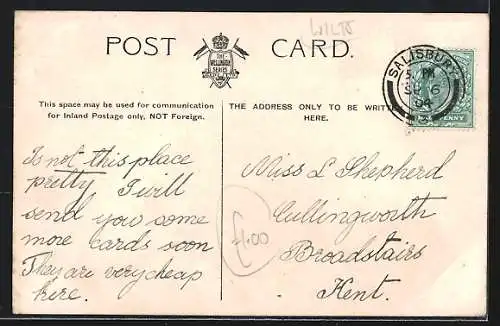 WILTS
POST CARD.
THE
WELLINGTON
SERIES
SALISBURY
PM
6
04
This space may be used for communication
for Inland Postage only, NOT Foreign.
THE ADDRESS ONLY TO BE
HERE.
Is not this place
pretty I will
send you some
more cards soon
They are very cheap
here.
Miss L Shepherd
Cullingworth
Broadstairs
Kent.
£1.00